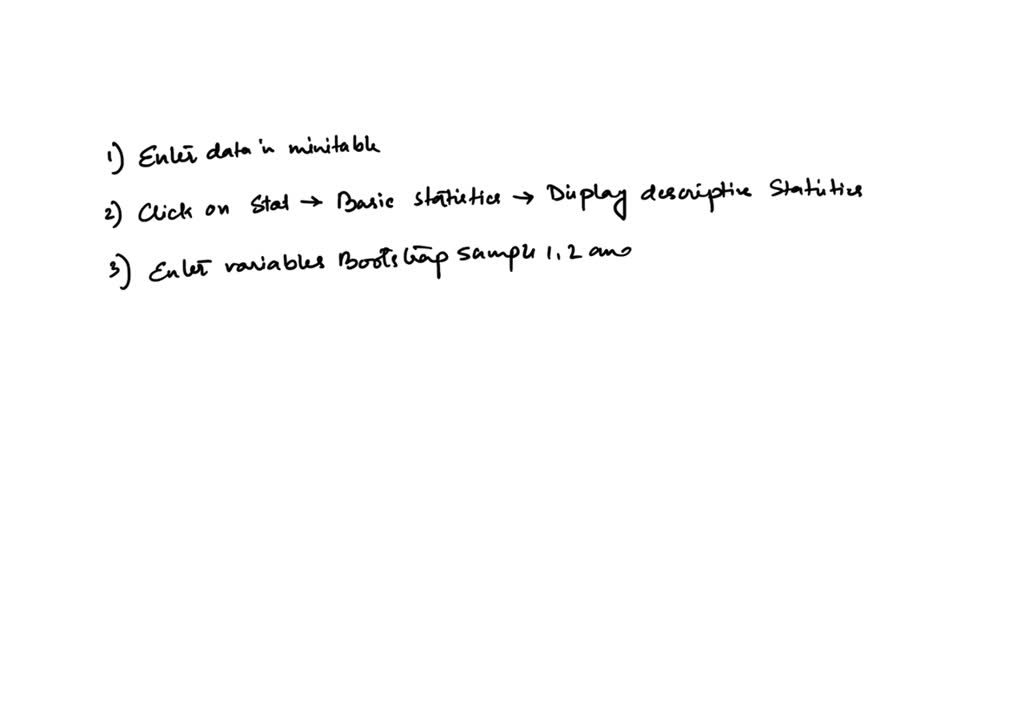 1) Enter data in minitable
2) Click on Stat → Basic statistics → Display descriptive Statistics
3) Enter variables Bootstrap sample 1, 2 and